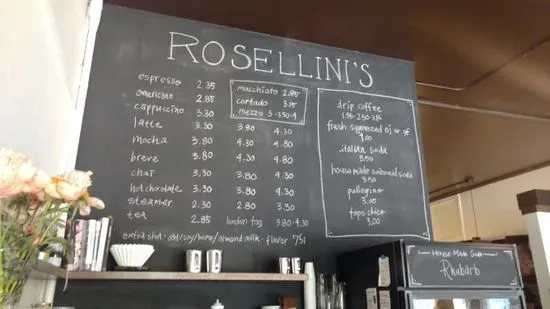 ROSELLINI'S
espresso 2.35
americano 2.85
cappuccino 3.30
latte 3.30 3.80 4.30
mocha 3.80 4.30 4.80
breve 3.80 4.30 4.80
chai 3.30 3.80 4.30
hot chocolate 3.30 3.80 4.30
steamer 2.30 2.80 3.30
tea 2.85 london fog 3.80 4.30
extra shot · oat/soy/hemp/almond milk · flavor .75/1
macchiato 2.95
cortado 3.15
mezzo 3-3.50-4
drip coffee
1.85-2.50-3.15
fresh squeezed oj or gf
4.00
italian soda
3.50
house made seasonal soda
3.50
pellegrino
3.00
topo chico
3.00
House Made Soda
Rhubarb